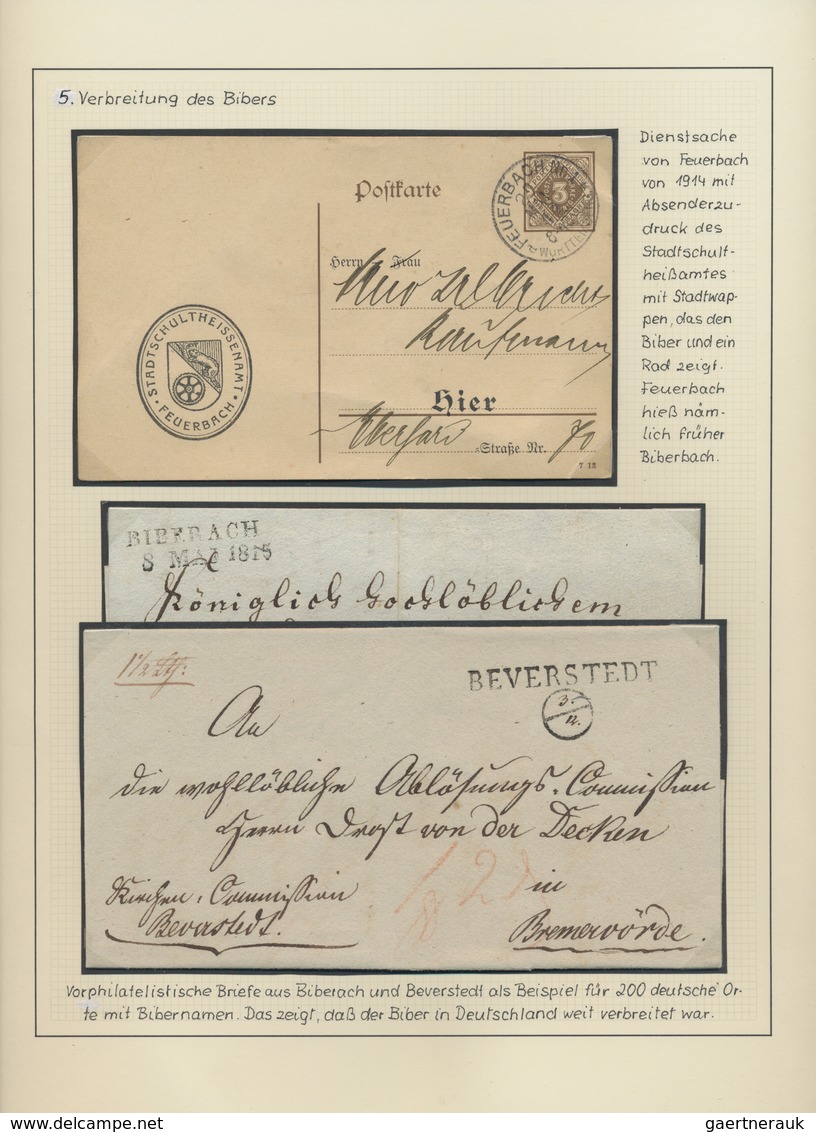 5. Verbreitung des Bibers
Postkarte
3
FEUERBACH
WÜRTTEM
Herrn Frau
Albrecht
Kaufmann
Hier
Eberhard -Straße Nr. 70
7 13
STADTSCHULTHEISSENAMT
FEUERBACH
Dienstsache
von Feuerbach
von 1914 mit
Absenderzu-
druck des
Stadtschult-
heißamtes
mit Stadtwap-
pen, das den
Biber und ein
Rad zeigt.
Feuerbach
hieß näm-
lich früher
Biberbach.
BIBERACH
8 MAI 1815
Königlich hochlöblichem
BEVERSTEDT
3.
12.
An
die wohllöbliche Ablösungs-Commission
Herrn Drost von der Decken
Kirchen-Commission
Beverstedt.
in
Bremervörde.
Vorphilatelistische Briefe aus Biberach und Beverstedt als Beispiel für 200 deutsche Or-
te mit Bibernamen. Das zeigt, daß der Biber in Deutschland weit verbreitet war.
www.delcampe.net
gaertnerauk